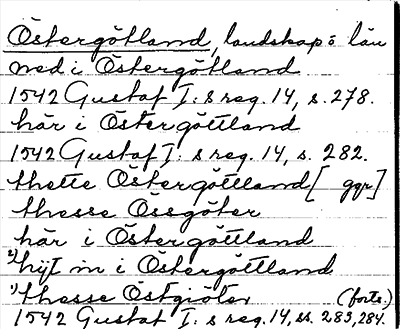 Östergötland, landskap o län
ned i Östergötland
1542 Gustaf I:s reg. 14, s. 278.
här i Östergöttland
1542 Gustaf I:s reg. 14, s. 282.
thette Östergöttland [ ggr]
thesse Össgöter
här i Östergöttland
2) hijt in i Östergöttland
1) thesse Östgiöter (forts.)
1542 Gustaf I:s reg. 14, ss. 283, 284.